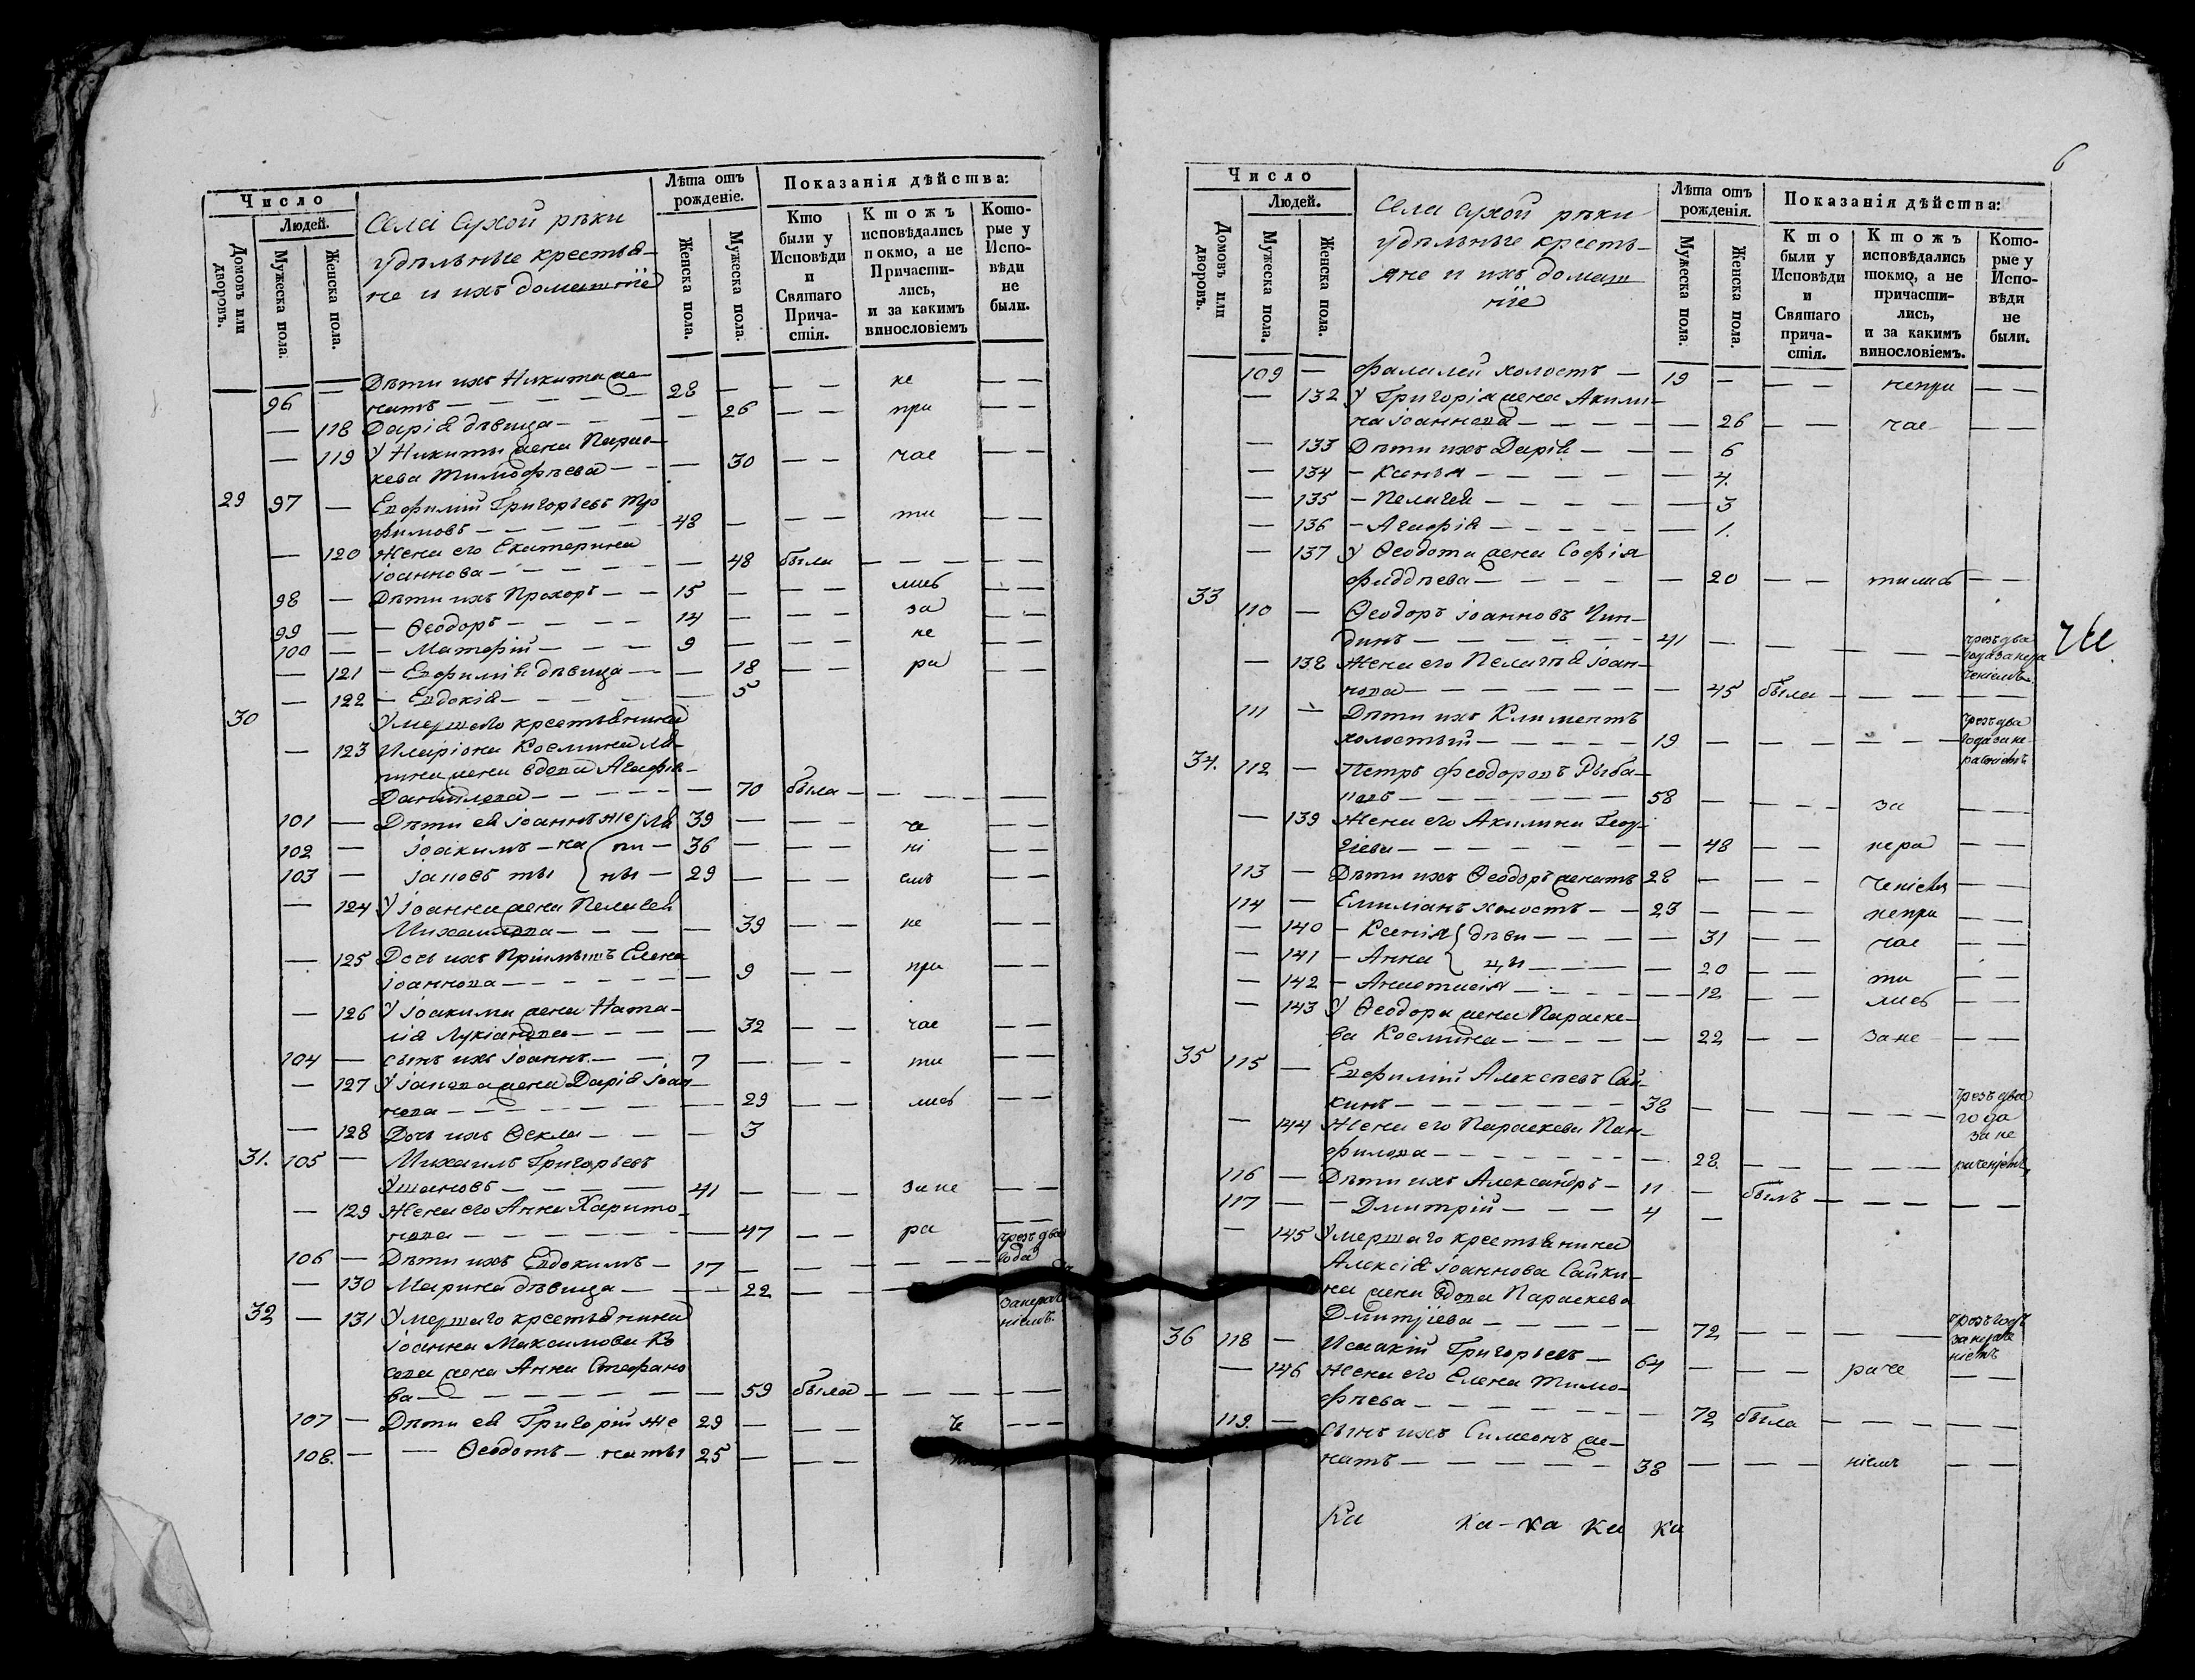 Число
Людей.
Домовъ или дворовъ.
Мужеска пола.
Женска пола.
Села Сухой рѣки
удѣльные крестья-
не и ихъ домашніе
Лѣта отъ рожденіе.
Женска пола.
Мужеска пола.
Показанія дѣйства:
Кто были у Исповѣди и Святаго Прича-стія.
Ктожъ исповѣдались покмо, а не Причасти-лись, и за какимъ винословіемъ
Кото-рые у Испо-вѣди не были.
96 — Дѣти ихъ Никита же-
натъ — 28 — — — не — —
— 118 Дарія дѣвица — — 26 — — при — —
— 119 У Никиты жена Парас-
кева Тимофѣева — — 30 — — час — —
29 97 — Евфимій Григорьевъ Тро
фимовъ — 48 — — — ти — —
— 120 Жена его Екатерина
Іоаннова — — 48 была — — —
98 — Дѣти ихъ Прохоръ — 15 — — — лись — —
99 — — Ѳеодоръ — 14 — — — за — —
100 — — Матфій — 9 — — — не — —
— 121 — Евфимія дѣвица — — 18 — — ра — —
— 122 — Евдокія — — 5
30 Умершаго крестьянина
— 123 Иларіона Космина Ля-
пина жена вдова Агафія
Даниилова — — 70 была — — —
101 — Дѣти ея Іоаннъ же Ля 39 — — — че — —
102 — Іоакимъ — на пи — 36 — — — ні — —
103 — Іаковъ ты ны — 29 — — — емъ — —
— 124 У Іоанна жена Пелагея
Михаилова — — 39 — — не — —
— 125 Дочь ихъ Пріимышъ Елена
Іоаннова — — 9 — — при — —
— 126 У Іоакима жена Ната-
лія Лукіанова — — 32 — — час — —
104 — Сынъ ихъ Іоаннъ — 7 — — — ти — —
— 127 У Іакова жена Дарія Іоан-
нова — — 29 — — лись — —
— 128 Дочь ихъ Ѳекла — — 3
31. 105 — Михаилъ Григорьевъ
Ушаковъ — 41 — — — за не — —
— 129 Жена его Анна Харито-
нова — — 47 — — ра — —
106 — Дѣти ихъ Евдокимъ — 17 — — — чрезъ два года
— 130 Марина дѣвица — — 22 — — —
32 — 131 Умершаго крестьянина
Іоанна Максимова Ко
сова жена Анна Стефано
ва — — 59 была — — —
107 — Дѣти ея Григорій же 29 — — — че — —
108. — — Ѳеодотъ — наты 25 — — —
6
Число
Людей.
Домовъ или дворовъ.
Мужеска пола.
Женска пола.
Села Сухой рѣки
удѣльные кресть-
яне и ихъ домаш
ніе
Лѣта отъ рожденія.
Мужеска пола.
Женска пола.
Показанія дѣйства:
Кто были у Исповѣди и Святаго прича-стія.
Ктожъ исповѣдались токмо, а не причасти-лись, и за какимъ винословіемъ.
Кото-рые у Испо-вѣди не были.
109 — Фалалей холостъ — 19 — — — непри — —
— 132 У Григорія жена Акили-
на Іоаннова — — 26 — — час — —
— 133 Дѣти ихъ Дарія — — 6
— 134 — Ксенья — — 4.
— 135 — Пелагея — — 3
— 136 — Агафія — — 1.
— 137 У Ѳеодота жена Софія
Фаддѣева — — 20 — — тились — —
33 110 — Ѳеодоръ Іоанновъ Чин-
динъ — 41 — — — — чрезъ два года за нера ченіемъ.
че
— 138 Жена его Пелагія Іоан-
нова — — 45 была — — —
111 — Дѣти ихъ Климентъ
холостый — 19 — — — — чрезъ два года за не раченіемъ
34. 112 — Петръ Феодоровъ Рыба-
ковъ — 58 — — — за — —
— 139 Жена его Акилина Геор-
гіева — — 48 — — нера — —
113 — Дѣти ихъ Ѳеодоръ женатъ 28 — — — ченіемъ — —
114 — Емиліанъ холостъ — 23 — — — непри — —
— 140 — Ксенія дѣви — — 31 — — час — —
— 141 — Анна цы — — 20 — — ти — —
— 142 — Анастасія — — 12 — — лись — —
— 143 У Ѳеодора жена Параске-
ва Космина — — 22 — — за не — —
35 115 — Евфимій Алексѣевъ Сай-
кинъ — 38 — — — — чрезъ два года за не раченіемъ
— 144 Жена его Параскева Пан-
филова — — 28. — — —
116 — Дѣти ихъ Александръ — 11 — былъ — — —
117 — — Дмитрій — 4 —
— 145 Умершаго крестьянина
Алексія Іоаннова Сайки-
на жена вдова Параскева
Дмитріева — — 72 — — — чрезъ годъ за нераче ніемъ
36 118 — Исаакій Григорьевъ — 64 — — — раче — —
— 146 Жена его Елена Тимо-
фѣева — — 72 была — — —
119. — Сынъ ихъ Симеонъ же-
натъ — 38 — — — ніемъ — —
Ка ка - ка ка ка